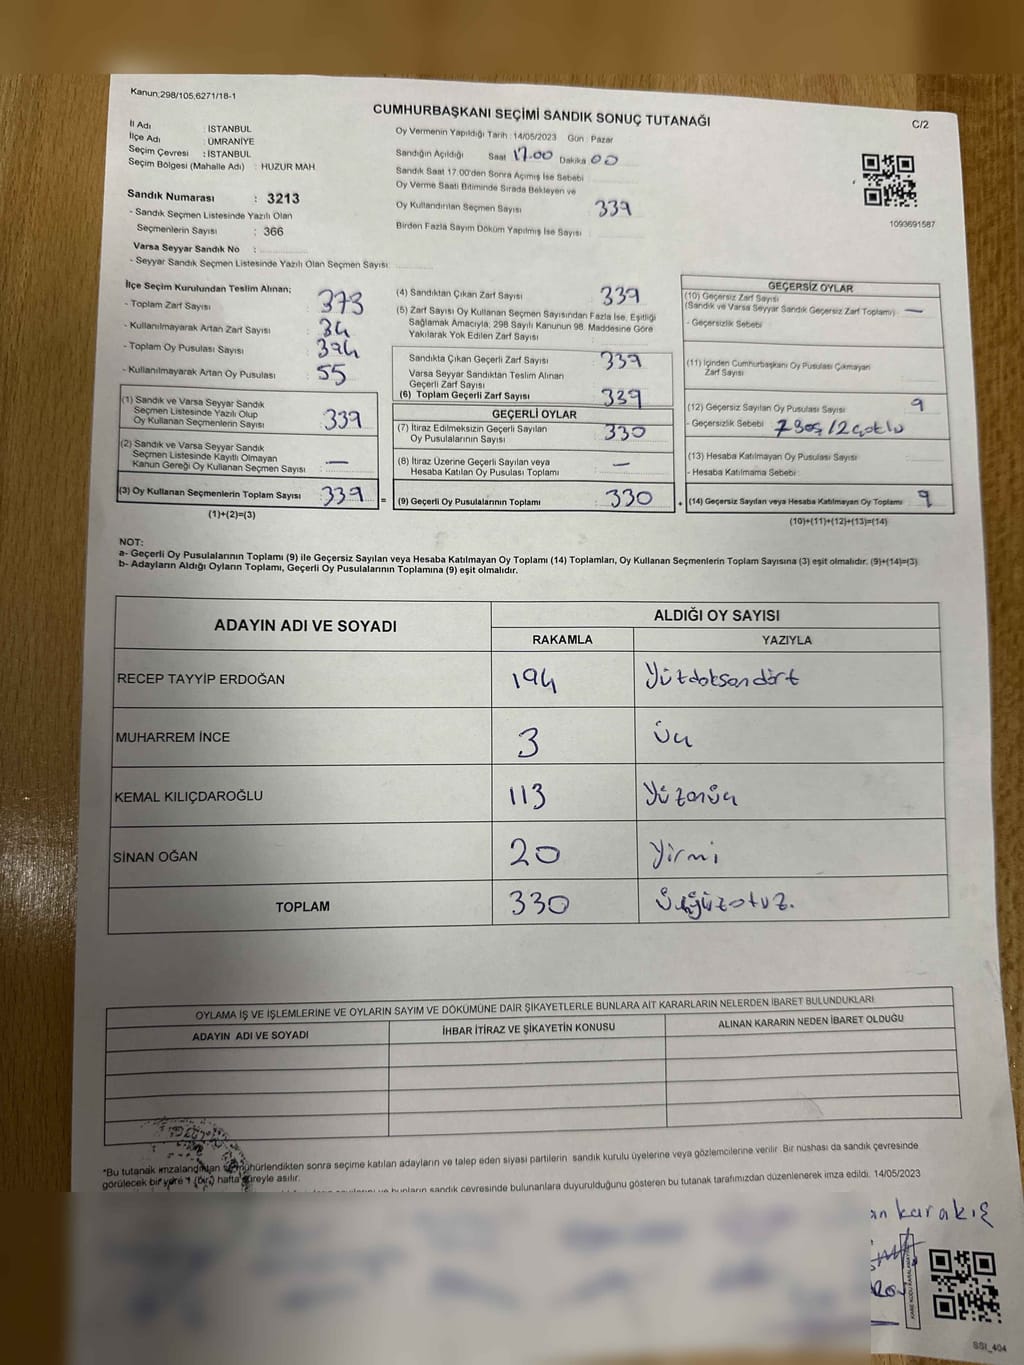 Kanun;298/105,6271/18-1
CUMHURBAŞKANI SEÇİMİ SANDIK SONUÇ TUTANAĞI
C/2
İl Adı : İSTANBUL
İlçe Adı : ÜMRANİYE
Seçim Çevresi : İSTANBUL
Seçim Bölgesi (Mahalle Adı) : HUZUR MAH
Sandık Numarası : 3213
- Sandık Seçmen Listesinde Yazılı Olan
Seçmenlerin Sayısı : 366
Varsa Seyyar Sandık No :
- Seyyar Sandık Seçmen Listesinde Yazılı Olan Seçmen Sayısı:
Oy Vermenin Yapıldığı Tarih :14/05/2023 Gün : Pazar
Sandığın Açıldığı Saat 17.00 Dakika 00
Sandık Saat 17.00'den Sonra Açımış İse Sebebi
Oy Verme Saati Bitiminde Sırada Bekleyen ve
Oy Kullandırılan Seçmen Sayısı 339
Birden Fazla Sayım Döküm Yapılmış İse Sayısı :
1093691587
İlçe Seçim Kurulundan Teslim Alınan;
- Toplam Zarf Sayısı 373
- Kullanılmayarak Artan Zarf Sayısı : 34
- Toplam Oy Pusulası Sayısı : 394
- Kullanılmayarak Artan Oy Pusulası : 55
(1) Sandık ve Varsa Seyyar Sandık
Seçmen Listesinde Yazılı Olup
Oy Kullanan Seçmenlerin Sayısı : 339
(2) Sandık ve Varsa Seyyar Sandık
Seçmen Listesinde Kayıtlı Olmayan
Kanun Gereği Oy Kullanan Seçmen Sayısı : —
(3) Oy Kullanan Seçmenlerin Toplam Sayısı : 339 =
(1)+(2)=(3)
(4) Sandıktan Çıkan Zarf Sayısı : 339
(5) Zarf Sayısı Oy Kullanan Seçmen Sayısından Fazla İse, Eşitliği
Sağlamak Amacıyla; 298 Sayılı Kanunun 98. Maddesine Göre
Yakılarak Yok Edilen Zarf Sayısı :
Sandıkta Çıkan Geçerli Zarf Sayısı : 339
Varsa Seyyar Sandıktan Teslim Alınan
Geçerli Zarf Sayısı :
(6) Toplam Geçerli Zarf Sayısı : 339
GEÇERLİ OYLAR
(7) İtiraz Edilmeksizin Geçerli Sayılan
Oy Pusulalarının Sayısı : 330
(8) İtiraz Üzerine Geçerli Sayılan veya
Hesaba Katılan Oy Pusulası Toplamı : —
(9) Geçerli Oy Pusulalarının Toplamı : 330 +
GEÇERSİZ OYLAR
(10) Geçersiz Zarf Sayısı
(Sandık ve Varsa Seyyar Sandık Geçersiz Zarf Toplamı) : —
- Geçersizlik Sebebi
(11) İçinden Cumhurbaşkanı Oy Pusulası Çıkmayan
Zarf Sayısı :
(12) Geçersiz Sayılan Oy Pusulası Sayısı : 9
- Geçersizlik Sebebi : 7 Boş / 2 çoklu
(13) Hesaba Katılmayan Oy Pusulası Sayısı :
- Hesaba Katılmama Sebebi :
(14) Geçersiz Sayılan veya Hesaba Katılmayan Oy Toplamı : 9
(10)+(11)+(12)+(13)=(14)
NOT:
a- Geçerli Oy Pusulalarının Toplamı (9) ile Geçersiz Sayılan veya Hesaba Katılmayan Oy Toplamı (14) Toplamları, Oy Kullanan Seçmenlerin Toplam Sayısına (3) eşit olmalıdır. (9)+(14)=(3)
b- Adayların Aldığı Oyların Toplamı, Geçerli Oy Pusulalarının Toplamına (9) eşit olmalıdır.
ADAYIN ADI VE SOYADI
ALDIĞI OY SAYISI
RAKAMLA YAZIYLA
RECEP TAYYİP ERDOĞAN 194 Yüzdoksandört
MUHARREM İNCE 3 Üç
KEMAL KILIÇDAROĞLU 113 Yüzonüç
SİNAN OĞAN 20 Yirmi
TOPLAM 330 Üçyüzotuz.
OYLAMA İŞ VE İŞLEMLERİNE VE OYLARIN SAYIM VE DÖKÜMÜNE DAİR ŞİKAYETLERLE BUNLARA AİT KARARLARIN NELERDEN İBARET BULUNDUKLARI
ADAYIN ADI VE SOYADI İHBAR İTİRAZ VE ŞİKAYETİN KONUSU ALINAN KARARIN NEDEN İBARET OLDUĞU
*Bu tutanak imzalandıktan ve mühürlendikten sonra seçime katılan adayların ve talep eden siyasi partilerin sandık kurulu üyelerine veya gözlemcilerine verilir. Bir nüshası da sandık çevresinde
görülecek bir yere 1 (bir) hafta süreyle asılır.
ve bunların sandık çevresinde bulunanlara duyurulduğunu gösteren bu tutanak tarafımızdan düzenlenerek imza edildi. 14/05/2023
karakış
SSI_404